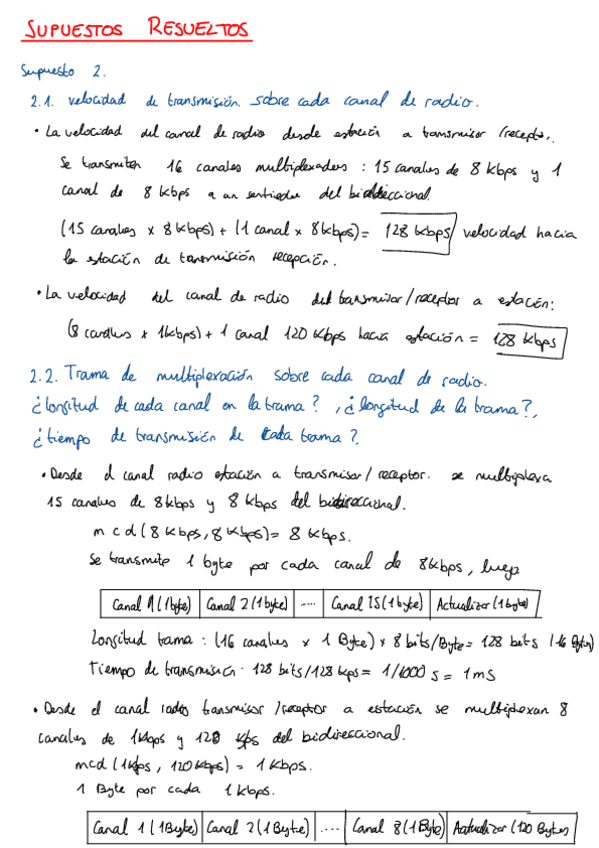 SUPUESTOS RESUELTOS
Supuesto 2.
2.1. velocidad de transmisión sobre cada canal de radio.
• La velocidad del canal de radio desde estación a transmisor/receptor.
Se transmiten 16 canales multiplexados : 15 canales de 8 kbps y 1
canal de 8 kbps a un sentido del bidireccional.
(15 canales x 8 kbps) + (1 canal x 8 kbps) = 128 kbps velocidad hacia
la estación de transmisión recepción.
• La velocidad del canal de radio del transmisor/receptor a estación:
(8 canales x 1kbps) + 1 canal 120 kbps hacia estación = 128 kbps
2.2. Trama de multiplexación sobre cada canal de radio.
¿longitud de cada canal en la trama? , ¿longitud de la trama?,
¿tiempo de transmisión de cada trama?.
• Desde el canal radio estación a transmisor/receptor. se multiplexa
15 canales de 8kbps y 8 kbps del bidireccional.
m c d (8 kbps, 8 kbps) = 8 kbps.
Se transmite 1 byte por cada canal de 8kbps, luego
Canal 1 (1byte) Canal 2 (1byte) ..... Canal 15 (1byte) Actualizar (1byte)
Longitud trama : (16 canales x 1 Byte) x 8 bits/Byte = 128 bits (16 Bytes)
Tiempo de transmisión. 128 bits/128 kbps = 1/1000 s = 1ms
• Desde el canal radio transmisor/receptor a estación se multiplexan 8
canales de 1kbps y 120 kbps del bidireccional.
mcd (1kbps, 120kbps) = 1 kbps.
1 Byte por cada 1 kbps.
Canal 1 (1Byte) Canal 2 (1Byte) .... Canal 8 (1Byte) Actualizar (120 Bytes)